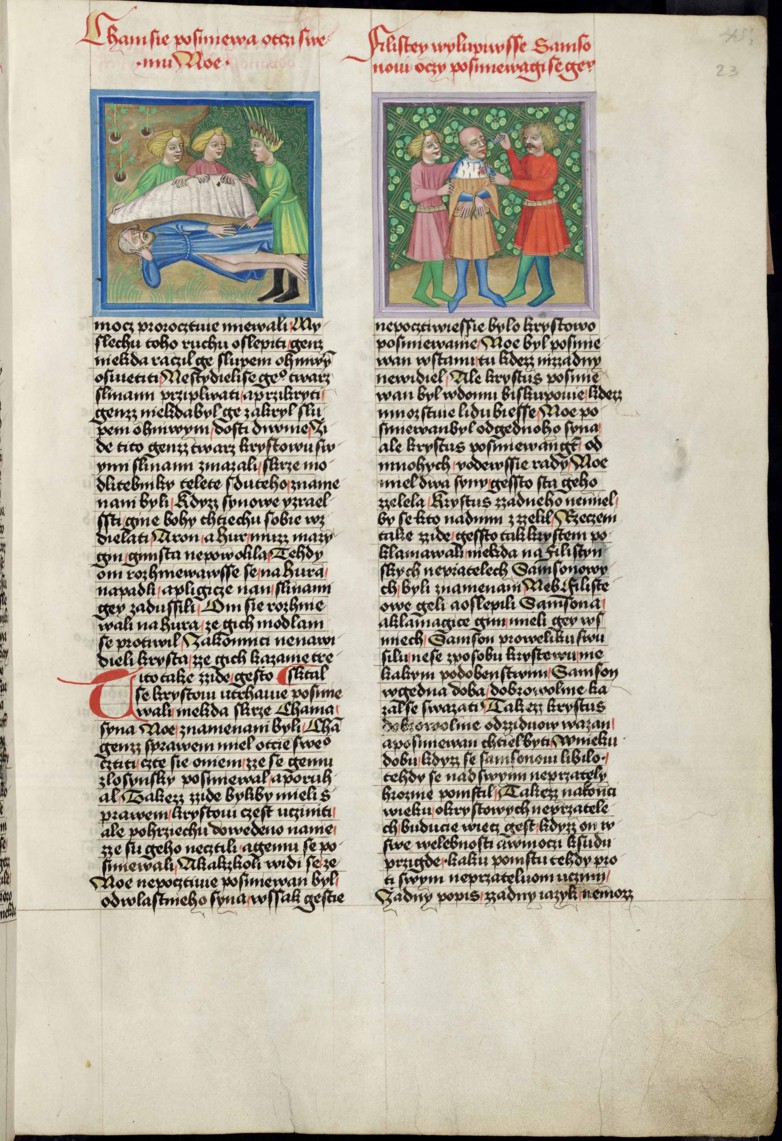 Cham sie posmiewa otczi swe
mu Noe
mocz prorocztwie mniewali My
slechu toho ruchu oslepiti genz
niekda raczil ge slupem ohniwym
oswietiti Nestydielise geo twarz
slinami przipliwati a przikryti
genzz niekda byl ge zakryl slu
pem ohniwym dosti diwnie Zi
de tito genzz twarz krystowu sw
ymi slinami zmazali skrze mo
dlitebniky telete sduteho zname
nani byli Kdyzz synowe yzrael
ssti gine bohy chtiechu sobie wz
dielati Aron a hur muzz mary
gin ginista nepowolila Tehdy
oni rozhniewawsse se na hura
napadli a pligicze nan slinami
gey zadussili Oni sie rozhnie
wali na hura ze gich modlam
se protiwil Zakonnici nenawi
dieli krysta zze gich kazanie tre
Tuto take zzide gesto sktal
se krystowi utrhawie posmie
wali niekda skrze Chama
syna Noe znamenani byli Cha
genzz sprawem miel otcie sweo
cztiti czte sie oniem zze se gemu
zlosynsky posmiewal a poruh
al Takezz zzide bykby mieli s
prawem krystowi czest ucziniti
ale pohrziechu dowedeno name
zze su geho necztili a gemu se po
smiewali Akakzkoli widi se ze
Noe nepocztiwie posmiewan byl
od wlastnieho syna wssak gestie
Filistey wylupiwsse Samso
nowi oczy posmiewagi se gey
nepocztiwiessie bylo krystowo
posmiewanie Noe byl posmie
wan wstanu tu kdezz nizzadny
newidiel Ale krystus posmie
wan byl wdomu biskupowie kdezz
mnozstwie lidu biesse Noe po
smiewan byl od gednoho syna
ale krystus posmiewan gest od
mnohych yodewssie rady Noe
miel dwa syny gessto sta geho
zzelela Krystus zzadneho nemiel
by se kto nadnim zzelil Rzeczem
take zzide gessto tak krystem po
klamawali niekda na filistyn
skych neprzatelech Samsonowy
ch byli znamenani Neb filiste
owe geli a oslepili Samsona
aklamagice gim mieli gey ws
miech Samson prowelikú swu
silu nese zposobu krystowu nie
kakym podobenstwim Samson
wgedna doba dobrowolnie ka
zal se swazati Takezz krystus
dobrowolnie od zzidow wazan
a posmiewan chtiel byti Wnieku
dobu kdyzz se samsonowi libilo
tehdy se nad swymi neprzately
hroznie pomstil Takezz nakonci
wieku okrystowych neprzatele
ch buducie wiecz gest kdyzz on w
swe welebnosti awmoczi ksudu
przigde kaku pomstu tehdy pro
ti swym neprzateluom uczini
Zzadny popis zzadny iazyk nemozz
23